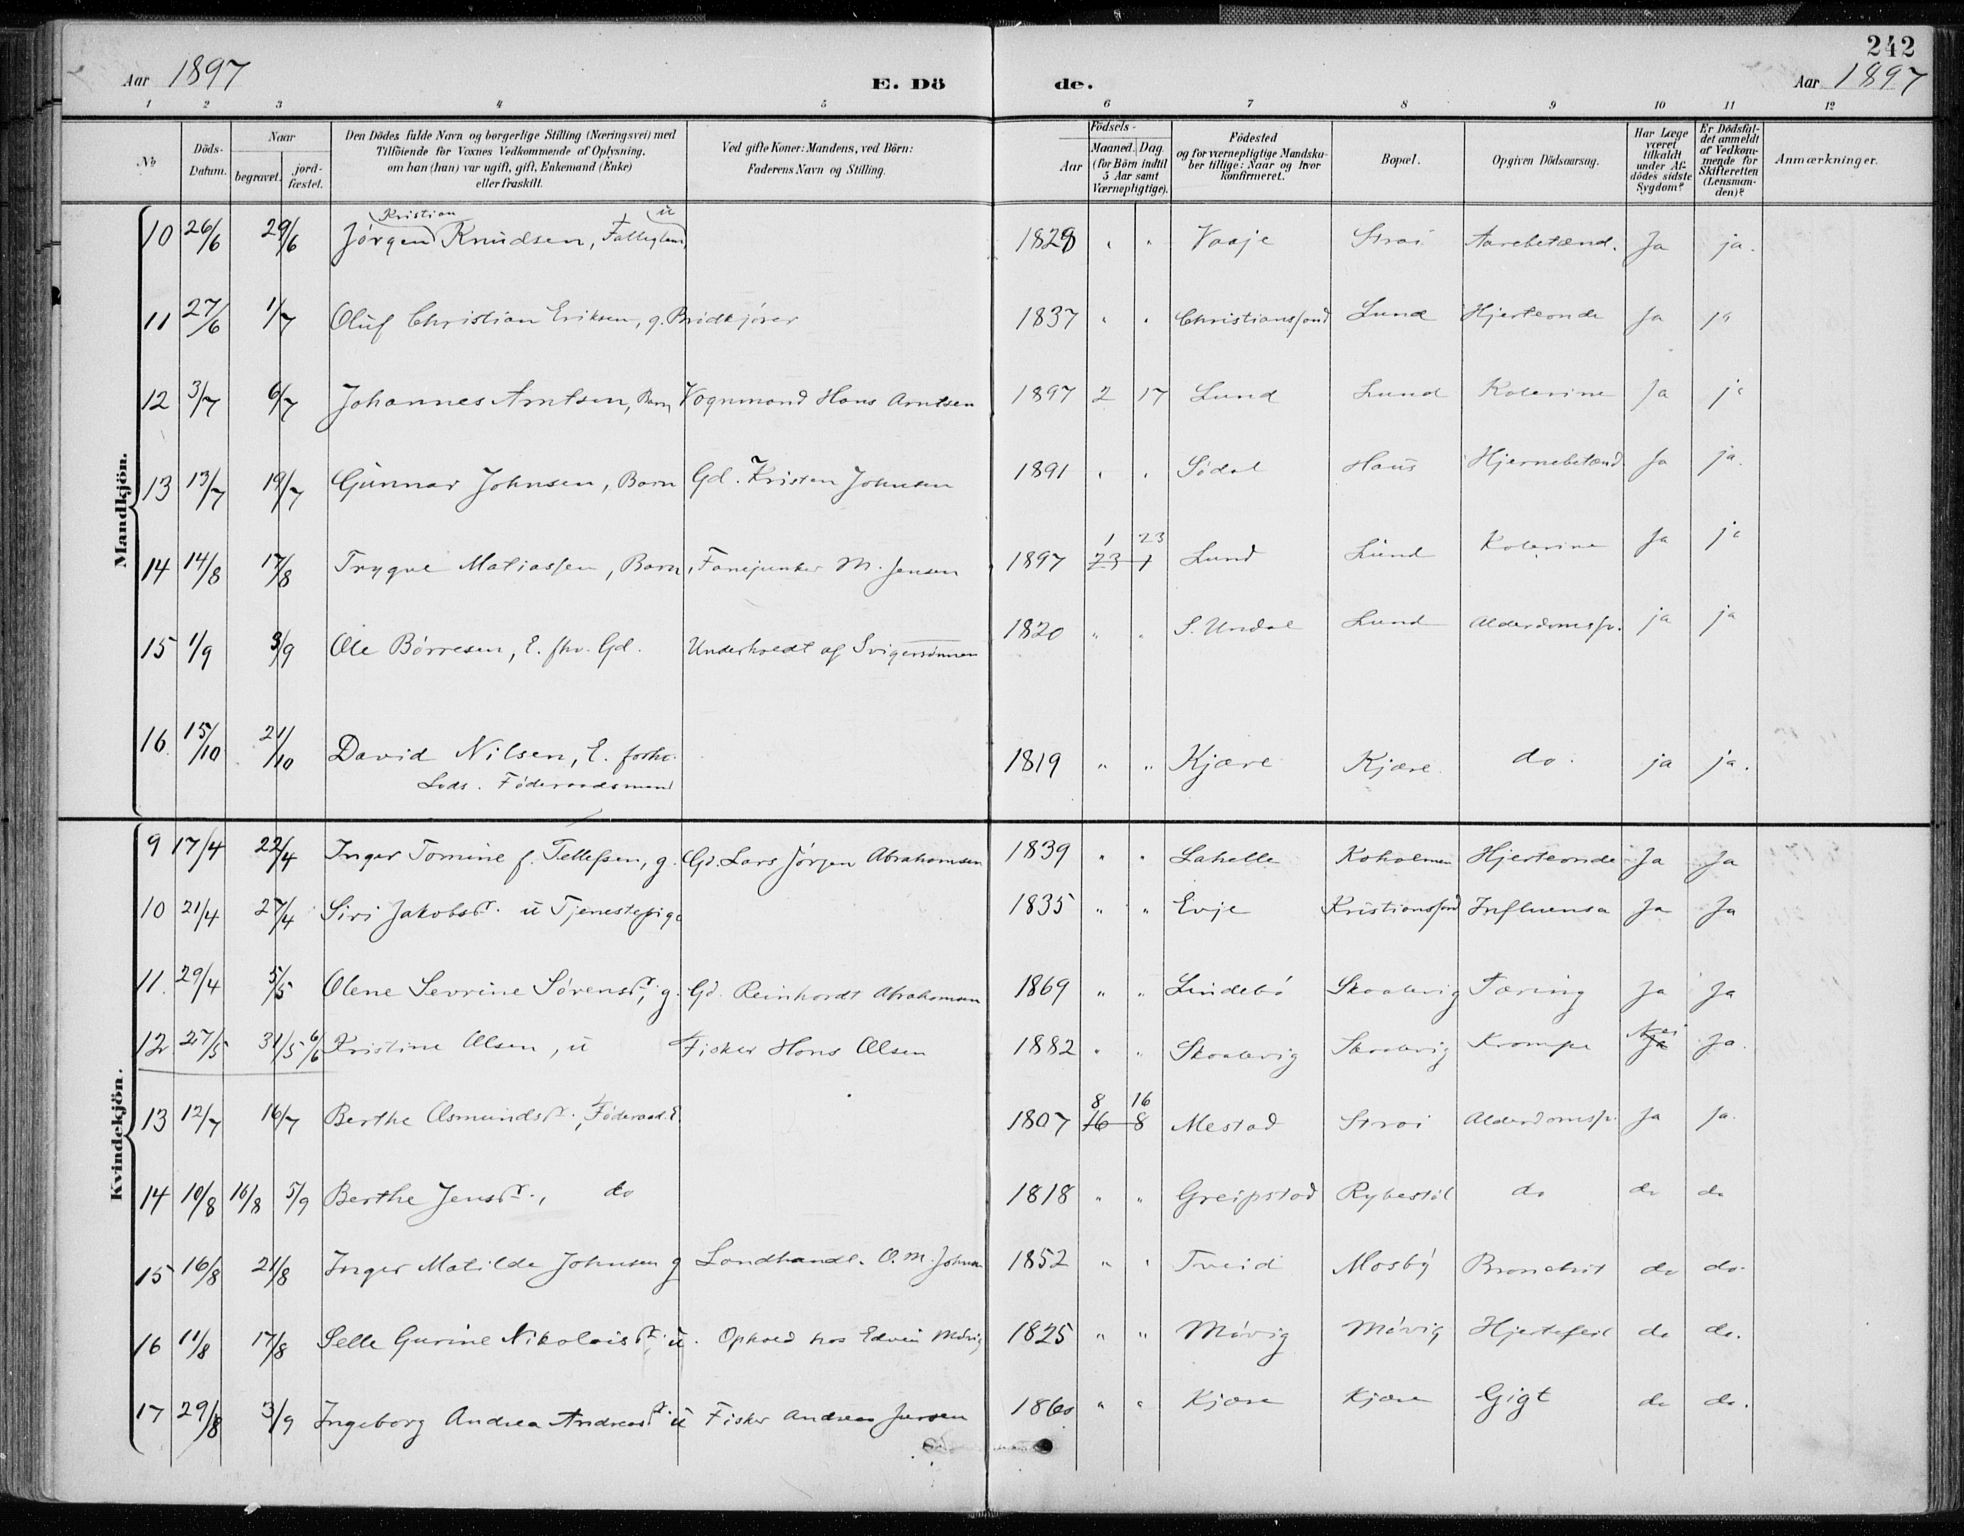 242
Aar 1897 E. Dö de. Aar 1897
1 2 3 4 5 6 7 8 9 10 11 12
No
Döds-Datum.
Naar
begravet.
jord-fæstet.
Den Dödes fulde Navn og borgerlige Stilling (Næringsvei) med
Tilföiende for Voxnes Vedkommende af Oplysning,
om han (hun) var ugift, gift, Enkemand (Enke)
eller fraskilt.
Ved gifte Koner: Mandens, ved Börn:
Faderens Navn og Stilling.
Födsels-
Aar
Maaned. Dag
(for Börn indtil
5 Aar samt
Værnepligtige).
Födested
og for værnepligtige Mandska-
ber tillige: Naar og hvor
konfirmeret.
Bopæl.
Opgiven Dödsaarsag.
Har Læge
været
tilkaldt
under Af-
dödes sidste
Sygdom?
Er Dödsfal-
det anmeldt
af Vedkom-
mende for
Skifteretten
(Lensman-
den)?
Anmærkninger.
Mandkjön.
Kristian u
10 26/6 29/6 Jørgen Knudsen, Fattiglem 1828 " " Vaaje Strai Aarebetænd. Ja ja.
11 27/6 1/7 Oluf Christian Eriksen, g. Brødkjører 1837 " " Christianssand Lund Hjerteonde Ja ja
12 3/7 6/7 Johannes Arntsen, Barn Vognmand Hans Arntsen 1897 2 17 Lund Lund Kolerine Ja ja
13 13/7 19/7 Gunnar Johnsen, Barn Gd. Kristen Johnsen 1891 " " Södal Haus Hjernebetænd Ja ja.
1 23
14 14/8 17/8 Trygve Matiassen, Barn, Fanejunker M. Jensen 1897 23 1 Lund Lund Kolerine Ja ja
15 1/9 3/9 Ole Børresen, E. fhv. Gd. Underholdt af Svigersønnen 1820 " " S. Undal Lund Alderdomssv. ja ja
16 15/10 21/10 David Nilsen, E. forhv. 1819 " " Kjære Kjære do. ja ja.
Lods. Föderaadsmand
Kvindekjön.
9 17/4 22/4 Inger Tomine f. Tellefsen, g. Gd. Lars Jørgen Abrahamsen 1839 " " Lahelle Koholmen Hjerteonde Ja Ja
10 21/4 27/4 Siri Jakobsdr. u Tjenestepige 1835 " " Evje Kristianssand Influensa Ja Ja
11. 29/4 5/5 Olene Sevrine Sørensdr, g. Gd. Reinhardt Abrahamsen 1869 " " Lindebø Skaalevig Tæring Ja Ja
12 27/5 31/5 6/6 Kristine Olsen, u Fisker Hans Olsen 1882 " " Skaalevig Skaalevig Krampe Nei Ja Ja.
8 16
13 12/7 16/7 Berthe Asmundsdr., Föderaad. E. 1807 16 8 Mestad Strai Alderdomssv. Ja ja.
14 10/8 16/8 5/9 Berthe Jensdr., do 1818 " " Greipstad Rybestöl do do do
15 16/8 21/8 Inger Matilde Johnsen g Landhandl. O. M. Johnsen 1852 " " Tveid Mosby Bronchit do do.
16 11/8 17/8 Selle Gurine Nikolaisdr, u. Ophold hos Edvin Møvig 1825 " " Møvig Møvig Hjertefeil do do.
17 29/8 3/9 Ingeborg Andrea Andreasdr. u Fisker Andreas Jensen 1860 " " Kjære Kjære Gigt do do.